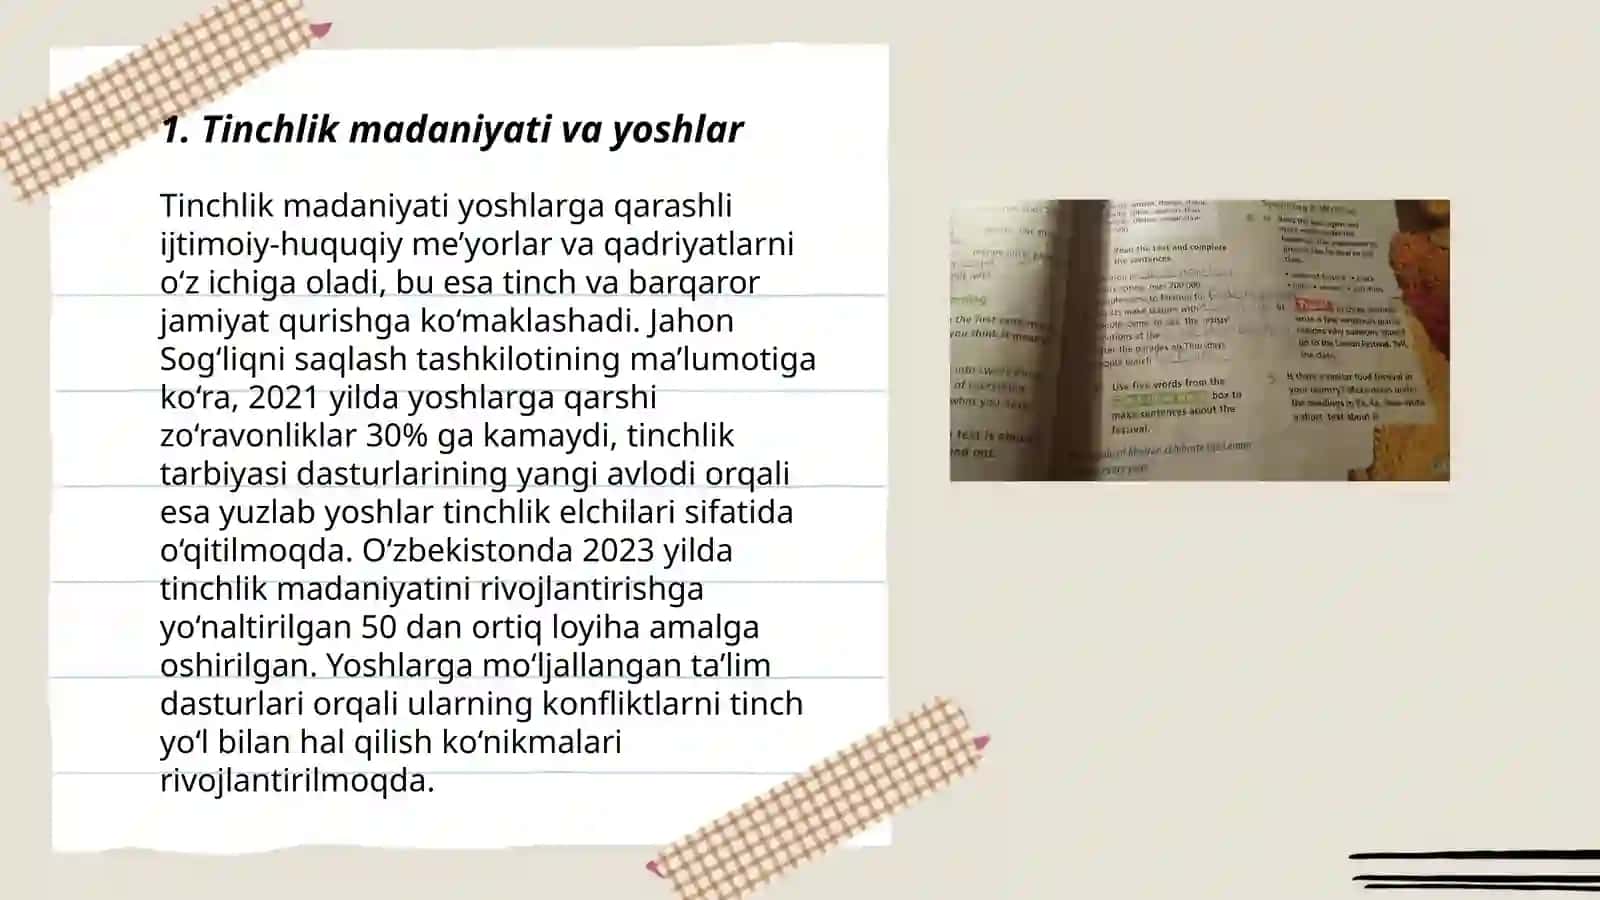 1. Tinchlik madaniyati va yoshlar
Tinchlik madaniyati yoshlarga qarashli
ijtimoiy-huquqiy me’yorlar va qadriyatlarni
o‘z ichiga oladi, bu esa tinch va barqaror
jamiyat qurishga ko‘maklashadi. Jahon
Sog‘liqni saqlash tashkilotining ma’lumotiga
ko‘ra, 2021 yilda yoshlarga qarshi
zo‘ravonliklar 30% ga kamaydi, tinchlik
tarbiyasi dasturlarining yangi avlodi orqali
esa yuzlab yoshlar tinchlik elchilari sifatida
o‘qitilmoqda. O‘zbekistonda 2023 yilda
tinchlik madaniyatini rivojlantirishga
yo‘naltirilgan 50 dan ortiq loyiha amalga
oshirilgan. Yoshlarga mo‘ljallangan ta’lim
dasturlari orqali ularning konfliktlarni tinch
yo‘l bilan hal qilish ko‘nikmalari
rivojlantirilmoqda.
Read the text and complete
the sentences.
Use five words from the
box to
make sentences about the
festival.